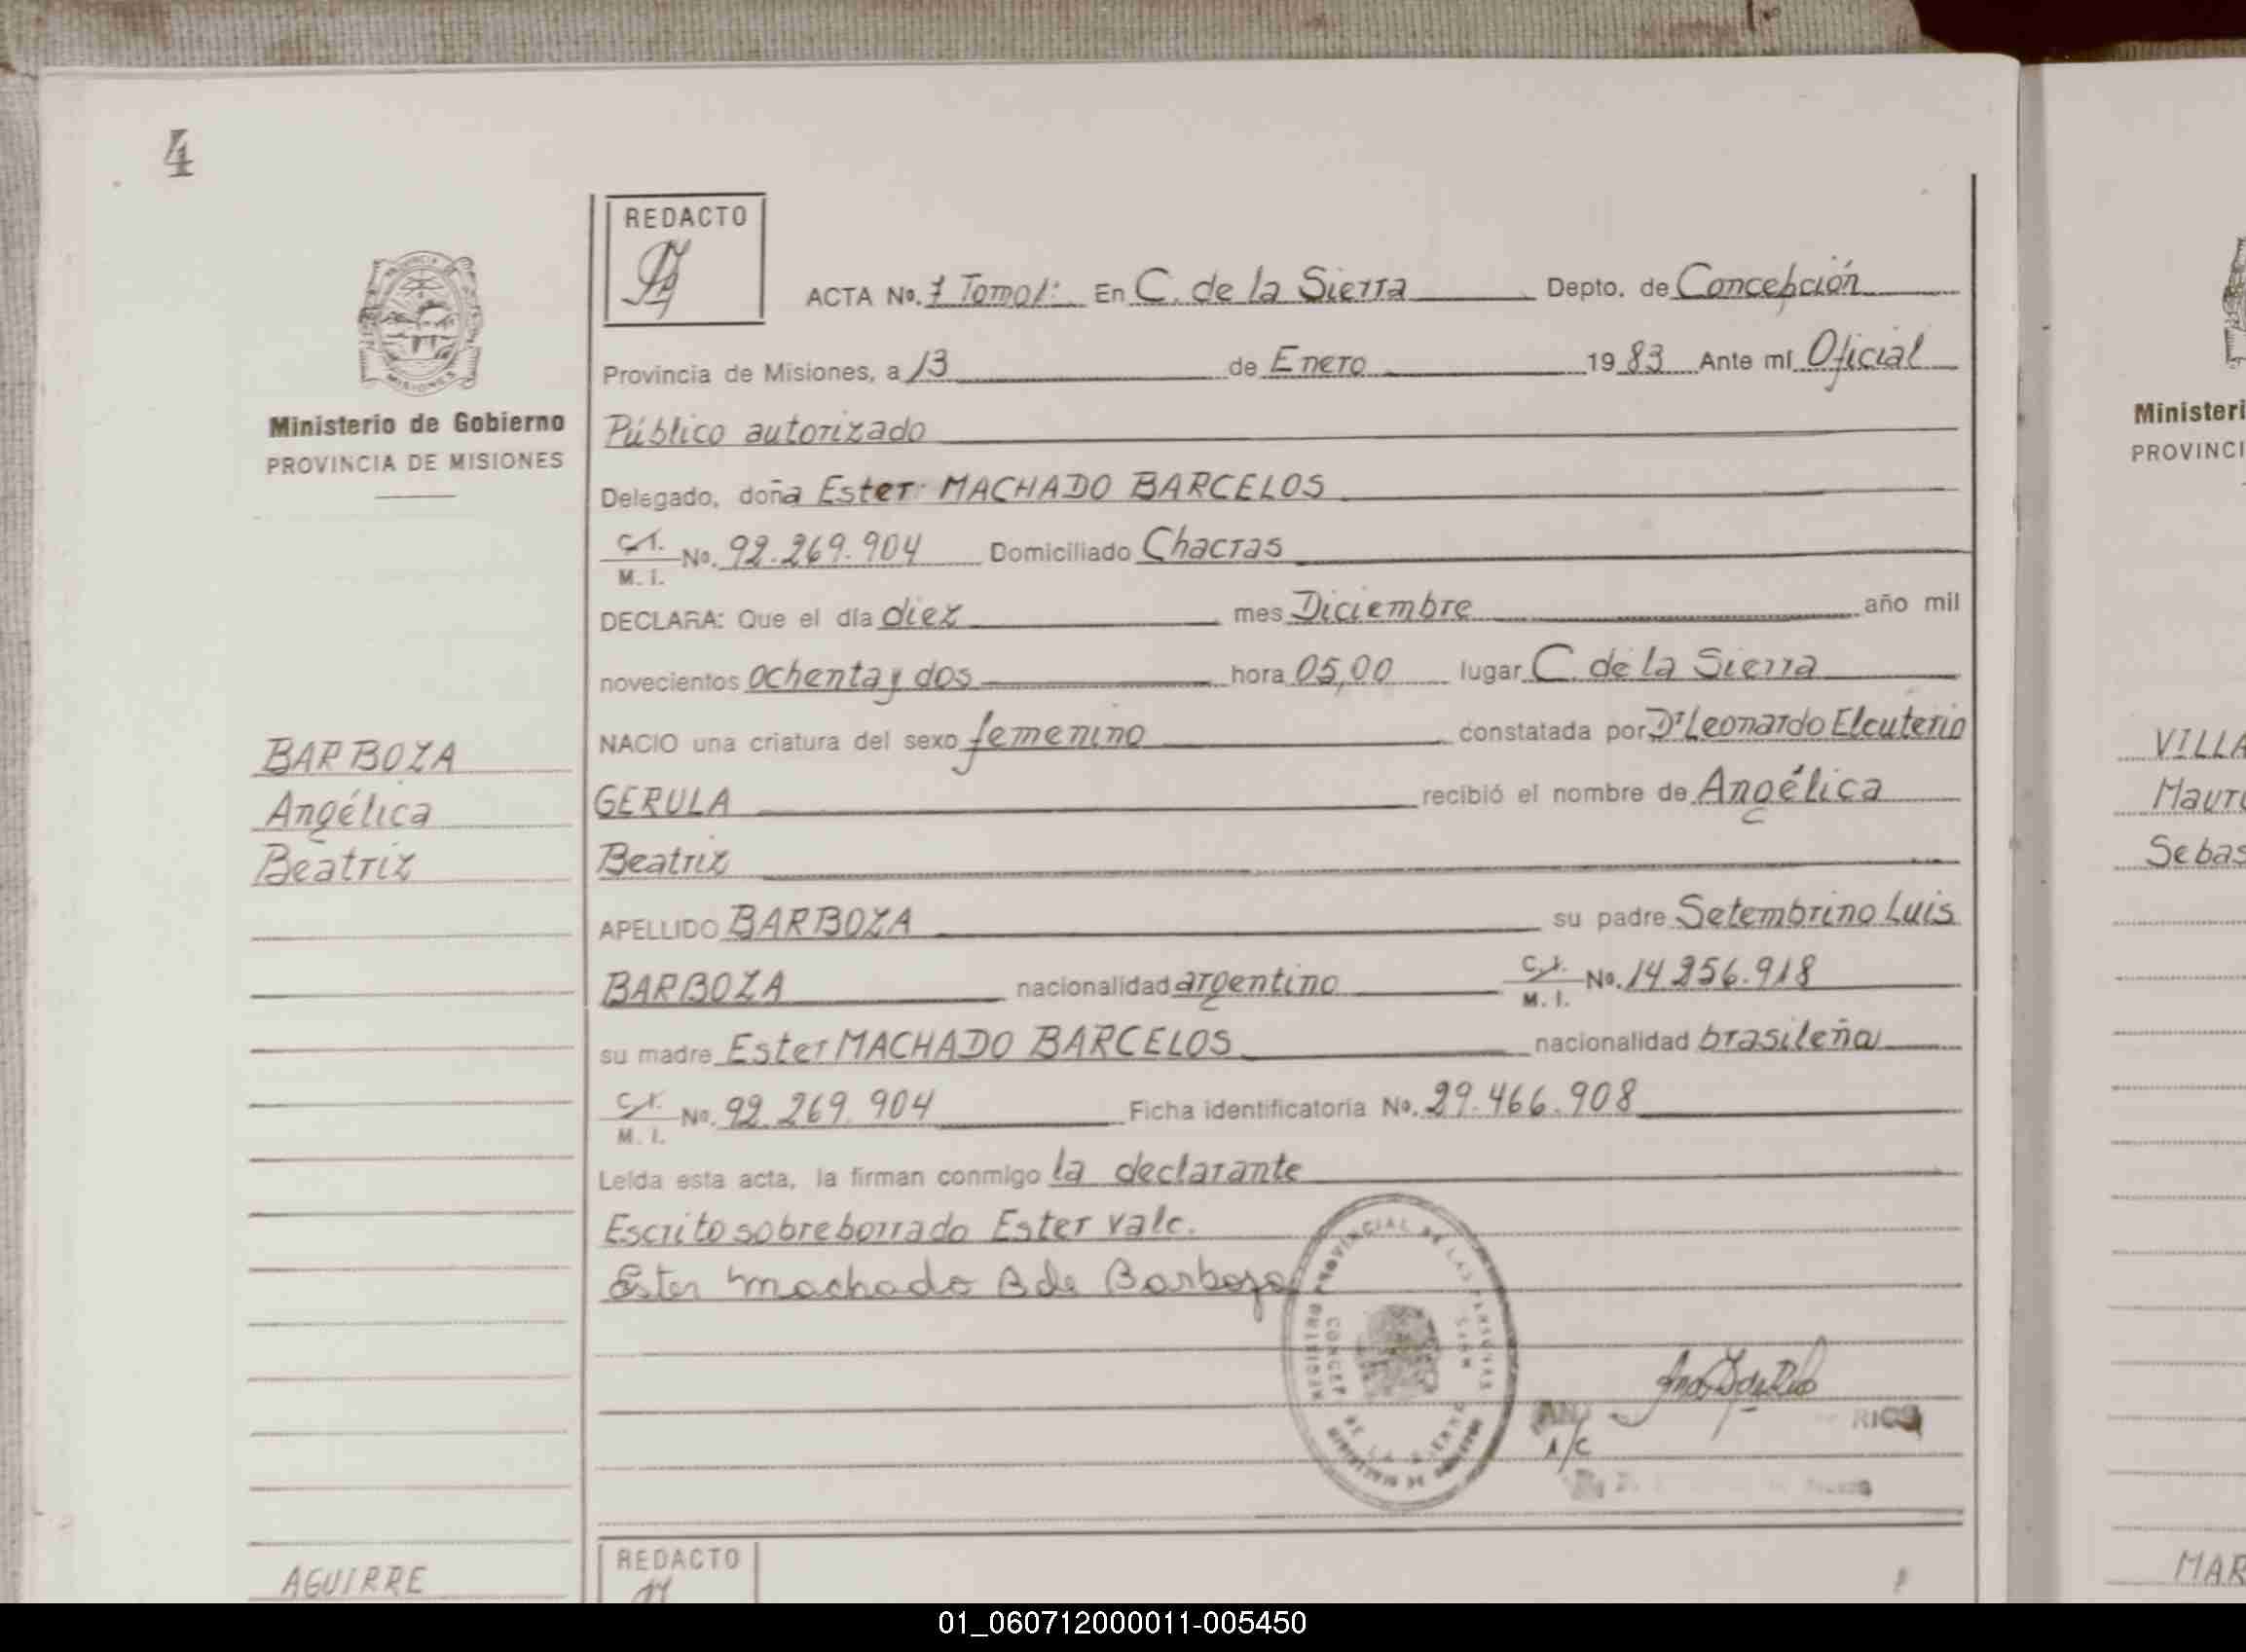 4
REDACTO
ACTA No. 7 Tomo 1: En C. de la Sierra Depto. de Concepción
Provincia de Misiones, a 13 de Enero 1983 Ante mí Oficial
Ministerio de Gobierno
PROVINCIA DE MISIONES
Público autorizado
Delegado, doña Ester MACHADO BARCELOS
C.I. M. I. No. 92.269.904 Domiciliado Chacras
DECLARA: Que el día diez mes Diciembre año mil
novecientos ochenta y dos hora 05,00 lugar C. de la Sierra
NACIO una criatura del sexo femenino constatada por Dr Leonardo Eleuterio
BARBOZA
Angélica
Beatriz
GERULA recibió el nombre de Angélica
Beatriz
APELLIDO BARBOZA su padre Setembrino Luis
BARBOZA nacionalidad argentino C.I. M. I. No. 14.256.918
su madre Ester MACHADO BARCELOS nacionalidad brasileña
C.I. M. I. No. 92.269.904 Ficha identificatoria No. 29.466.908
Leída esta acta, la firman conmigo la declarante
Escrito sobreborrado Ester vale.
Ester Machado B de Barboza
A/C
RICO
AGUIRRE
REDACTO
Ministeri
PROVINCI
VILLA
Sebas
MAR
01_060712000011-005450